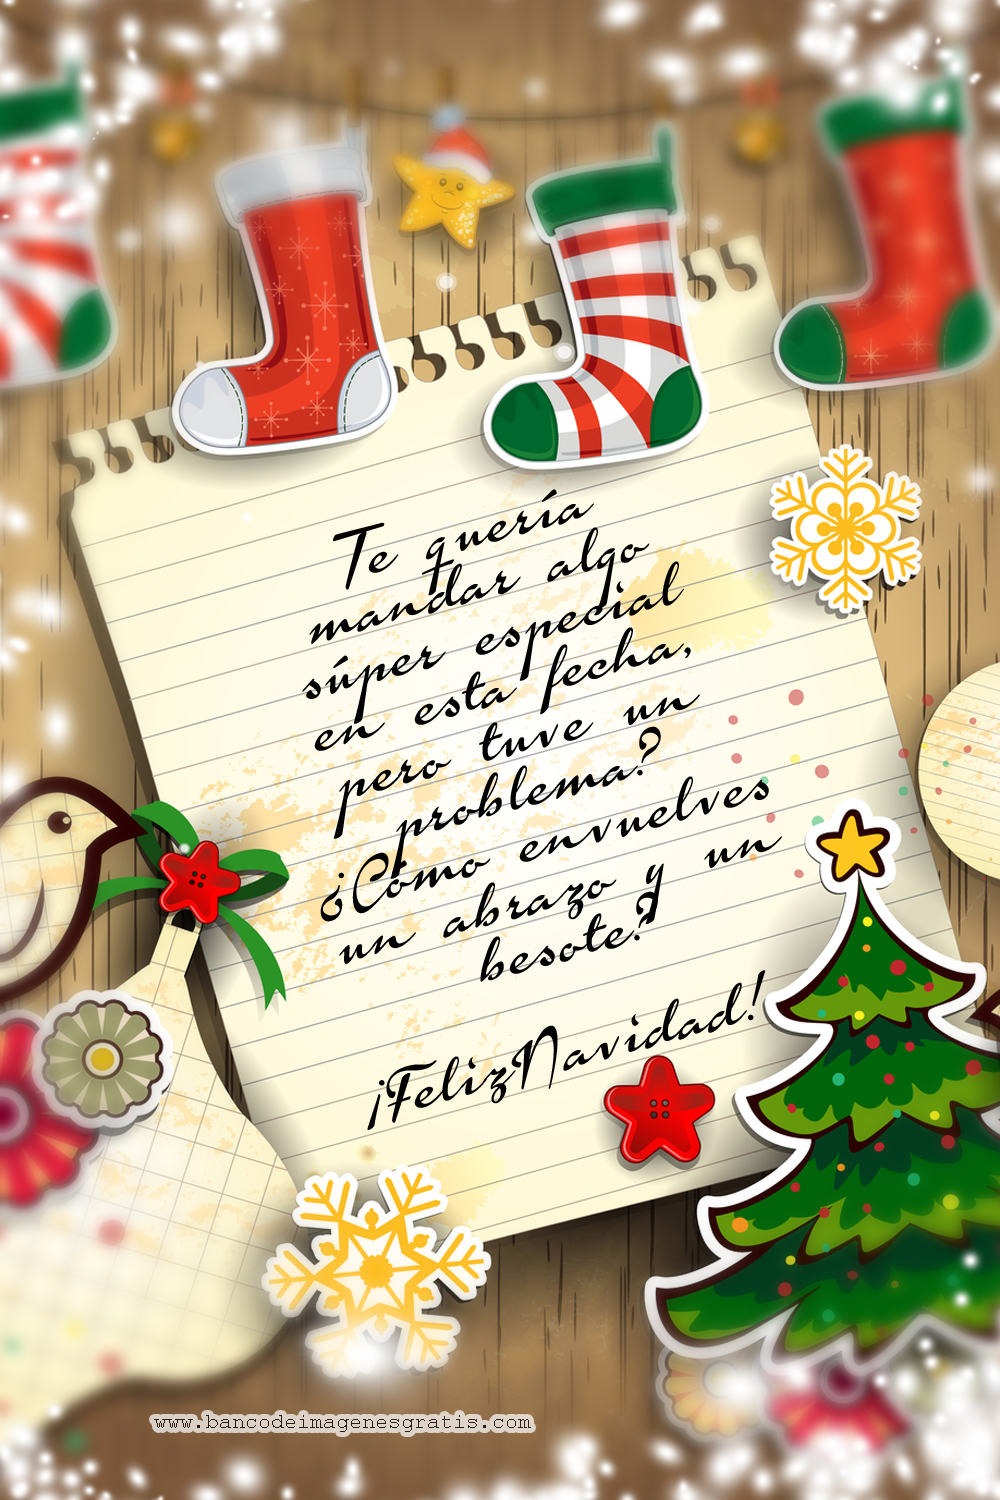 Te quería
mandar algo
súper especial
en esta fecha,
pero tuve un
problema?
¿Cómo envuelves
un abrazo y un
besote?
¡FelizNavidad!
www.bancodeimagenesgratis.com